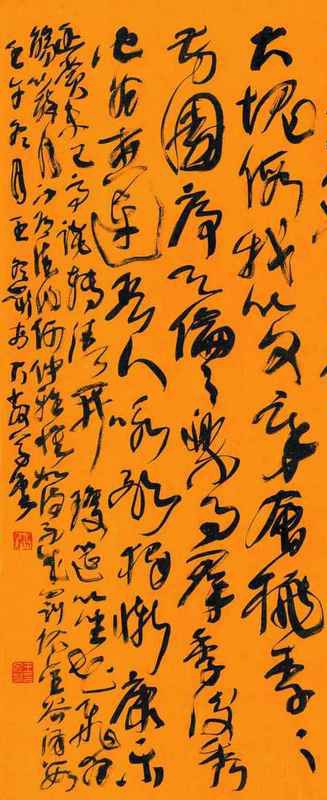 大塊假我以文章會桃李之
芳園序天倫之樂事群季俊秀
皆為惠連吾人詠歌獨慚康樂
幽賞未已高談轉清開瓊筵以坐花飛羽
觴而醉月不有佳詠何伸雅懷如詩不成罰依金谷酒數
壬午冬月王冬齡